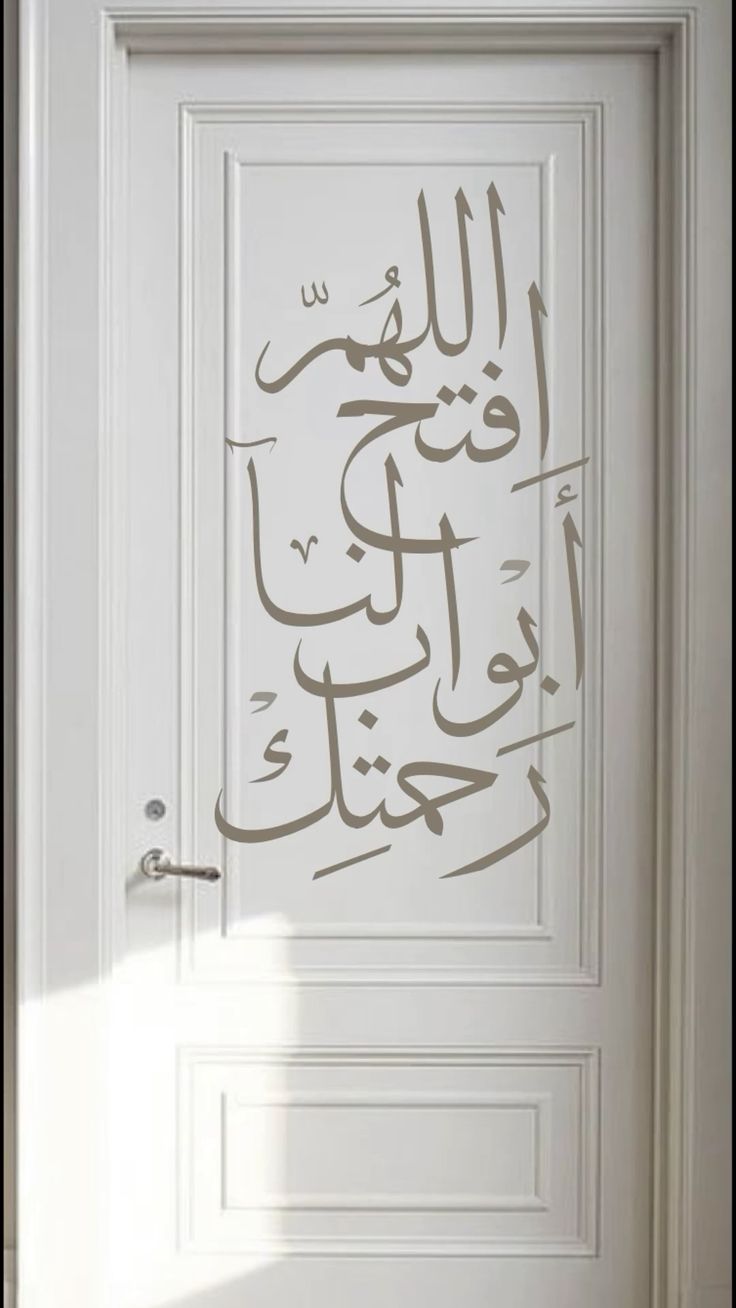 اللهُمّ
اِفتح
لنآ
أبْواب
رَحمتِكْ